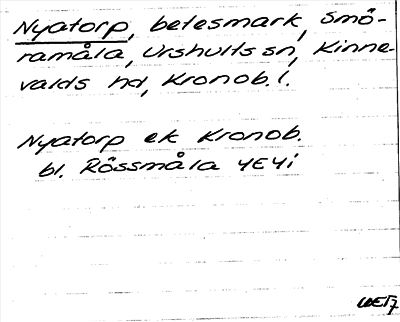 Nyatorp, betesmark, Smö-
ramåla, Urshults sn, Kinne-
valds hd, Kronob. l.
Nyatorp ek Kronob.
bl. Rössmåla 4E4i